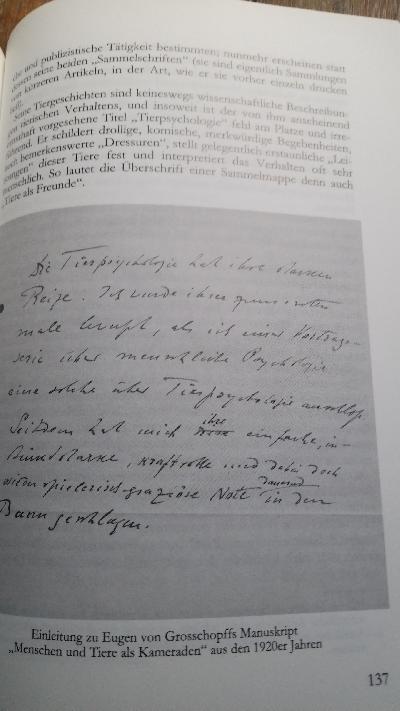 che und publizistische Tätigkeit bestimmten; nunmehr erscheinen statt
dessen seine beiden „Sammelschriften“ (sie sind eigentlich Sammlungen
von kürzeren Artikeln, in der Art, wie er sie vorher einzeln drucken
ließ.
Seine Tiergeschichten sind keineswegs wissenschaftliche Beschreibun-
gen tierischen Verhaltens, und insoweit ist der von ihm anscheinend
ernsthaft vorgesehene Titel „Tierpsychologie“ fehl am Platze und irre-
führend. Er schildert drollige, komische, merkwürdige Begebenheiten,
auch bemerkenswerte „Dressuren“, stellt gelegentlich erstaunliche „Lei-
stungen“ dieser Tiere fest und interpretiert das Verhalten oft sehr
menschlich. So lautet die Überschrift einer Sammelmappe denn auch
„Tiere als Freunde“.
Die Tierpsychologie hat ihre starken
Reize. Ich wurde ihrer zum ersten
male bewußt, als ich einer Vortrags-
serie über menschliche Psychologie
eine solche über Tierpsychologie anschloß.
Seitdem hat mich ihre einfache, in-
stinktstarke, kraftvolle und dabei doch
wieder spielerisch-graziöse Note dauernd in den
Bann geschlagen.
Einleitung zu Eugen von Grosschopffs Manuskript
„Menschen und Tiere als Kameraden“ aus den 1920er Jahren
137